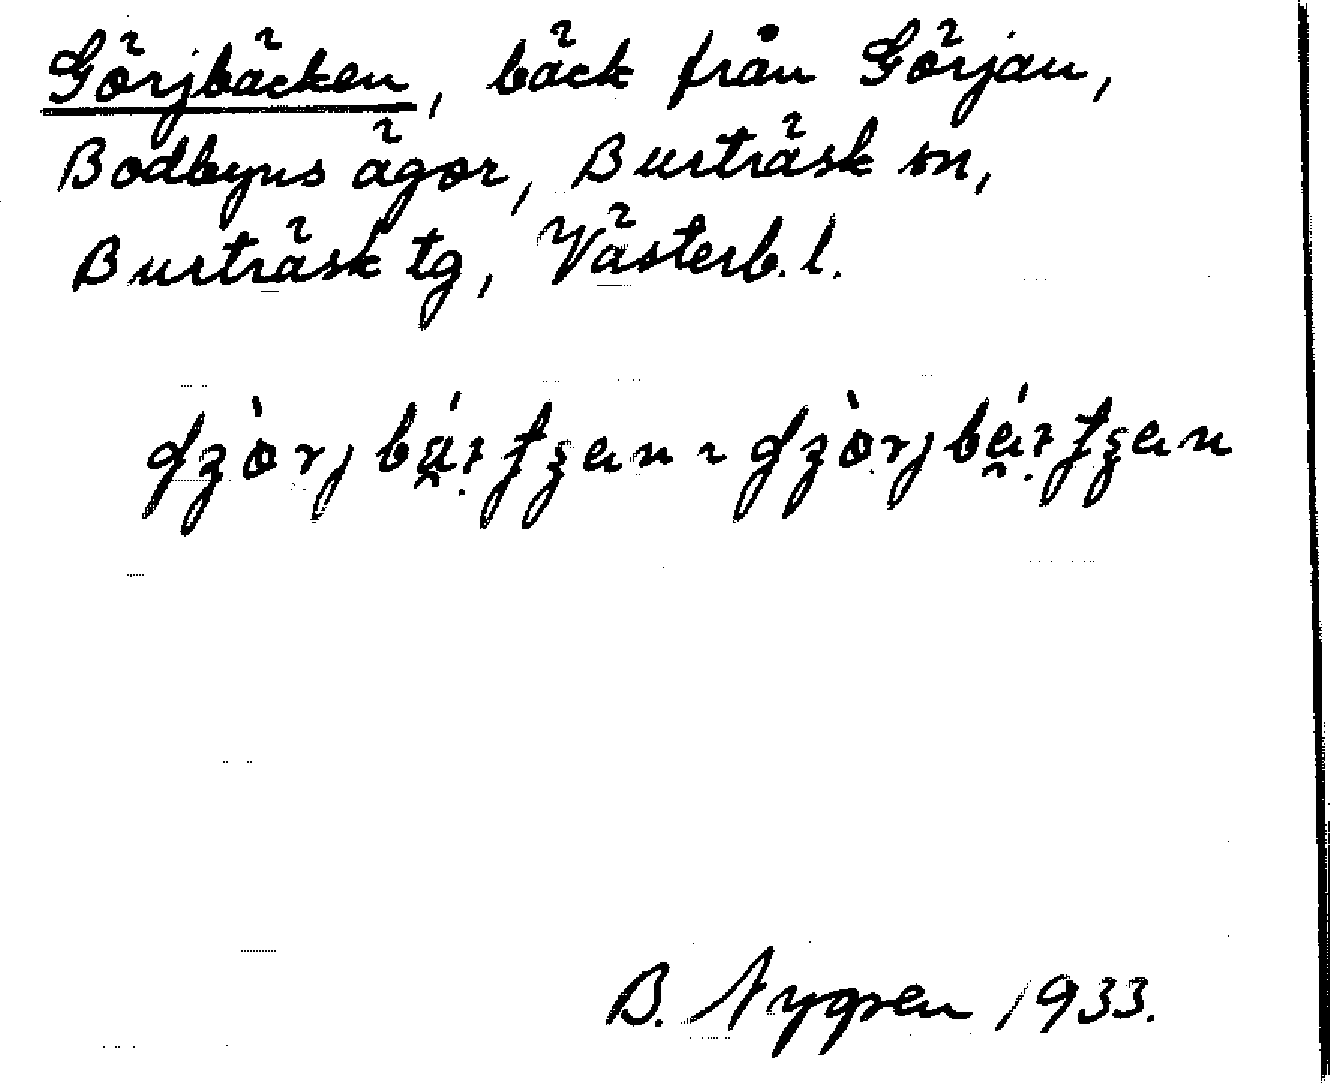 Görjbäcken, bäck från Görjan,
Bodbyns ägor, Burträsk sn,
Burträsk tg, Västerb. l.
B. Nygren 1933.